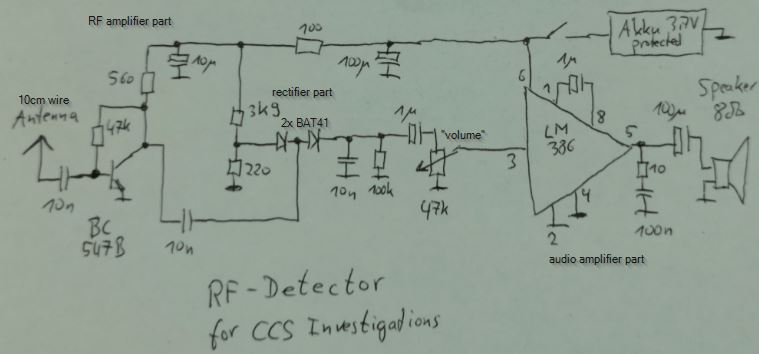 RF amplifier part
100
Akku 3.7V
protected
10µ
100µ
1µ
560
6
1
8
Speaker
8Ω
10cm wire
Antenna
rectifier part
3k9
2x BAT41
1µ
"volume"
LM
386
100µ
47k
5
3
220
10
10n
10n
100k
47k
4
2
100n
BC
547B
10n
audio amplifier part
RF-Detector
for CCS Investigations